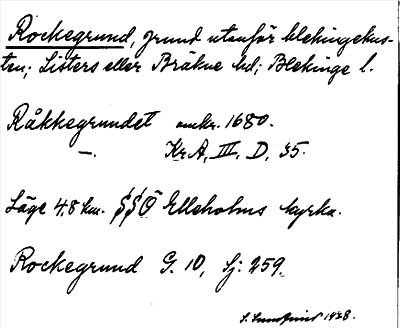 Rockegrund, grund utanför blekingekus-
ten; Listers eller Bräkne hd; Blekinge l.
Råkkegrundet omkr. 1680.
—. Kr.A, III, D, 35.
Läge 4,8 km. SSÖ Elleholms kyrka.
Rockegrund G. 10, Sj: 259.
S. Lundquist 1928.